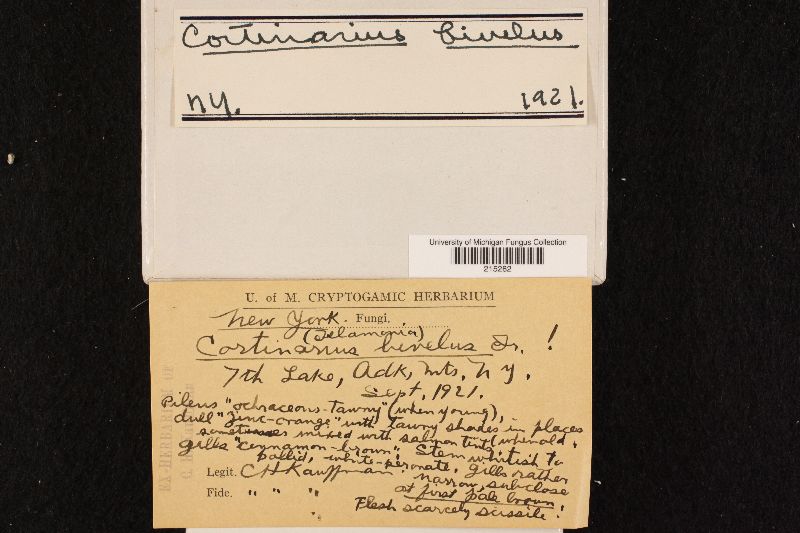 Cortinarius bivelus
NY. 1921.
University of Michigan Fungus Collection
215282
U. of M. CRYPTOGAMIC HERBARIUM
New York. Fungi.
(Telamonia)
Cortinarius bivelus Fr. !
7th Lake, Adk, Mts, N.Y.
Sept, 1921.
Pileus "ochraceous-tawny" (when young),
dull "zinc-orange" with tawny shades in places
sometimes mixed with salmon tint (when old.
gills "cinnamon-brown". Stem whitish to
pallid, white-peronate, gills rather
Legit. CHKauffman. narrow, subclose
at first pale brown!
Fide. " " "
Flesh scarcely scissile!
EX HERBARIUM OF